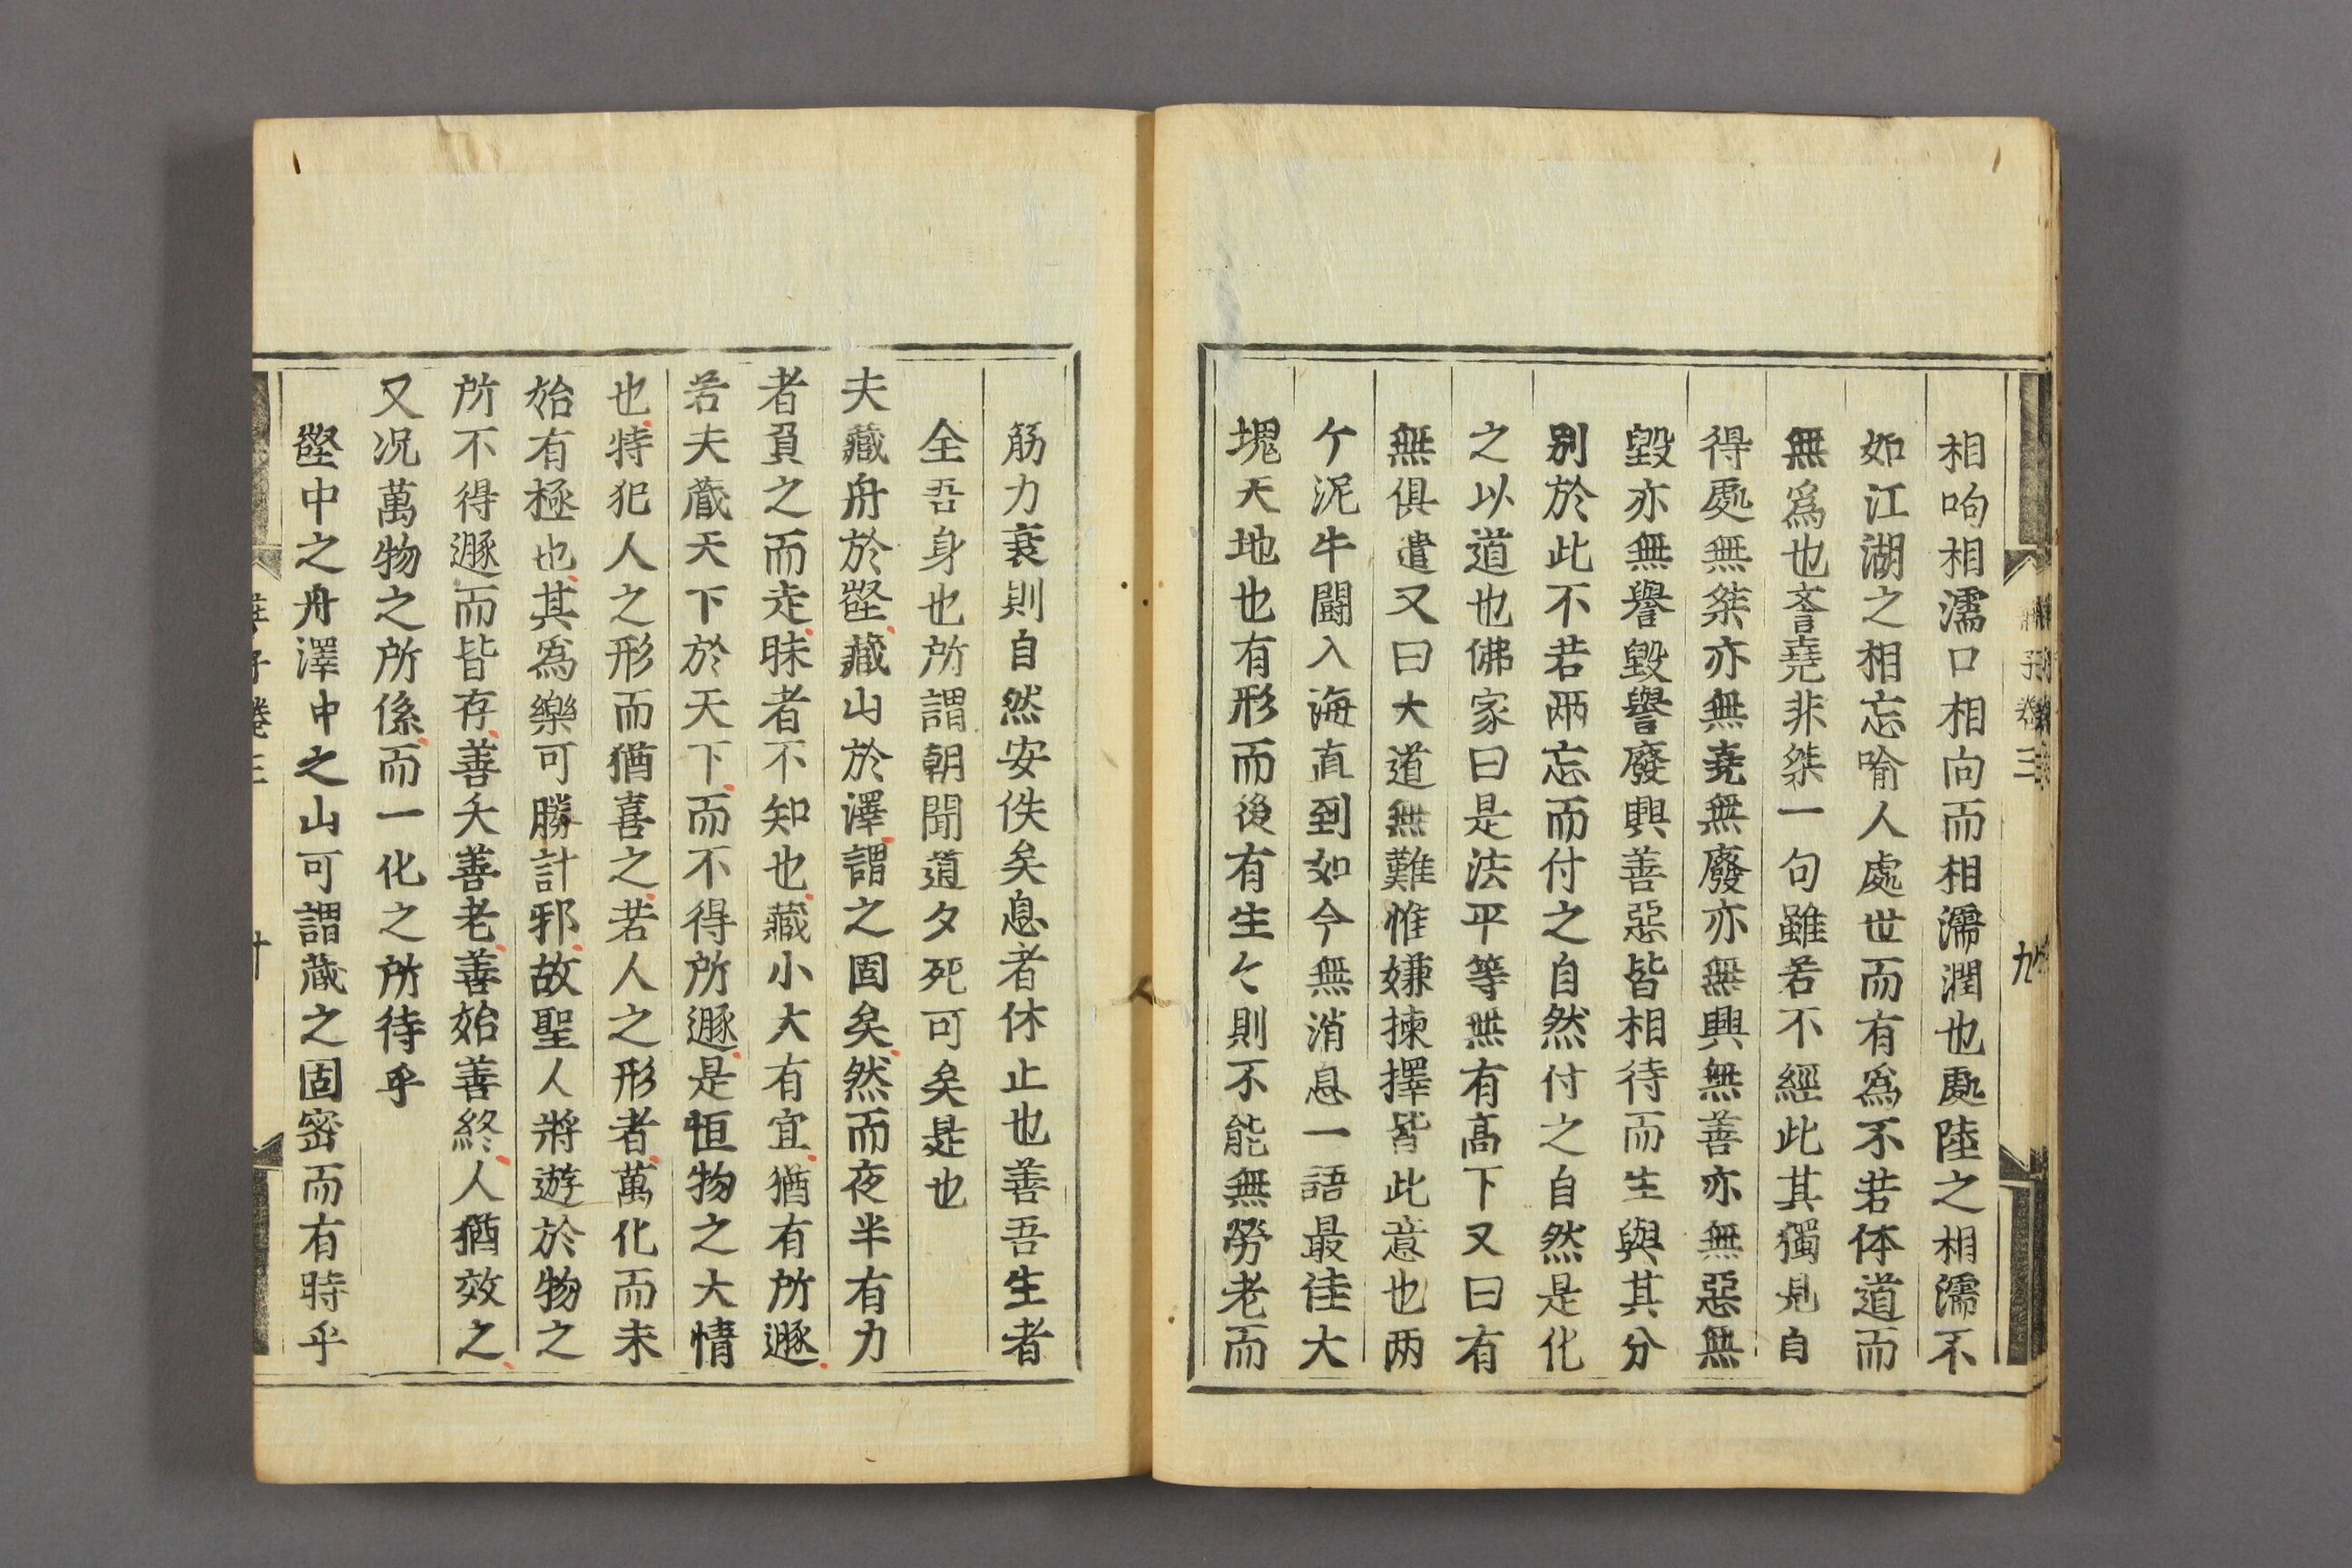 相呴相濡口相向而相濡潤也處陸之相濡不
如江湖之相忘喻人處世而有爲不若体道而
無爲也誉堯非桀一句雖若不經此其獨見自
得處無桀亦無堯無廢亦無興無善亦無惡無
毀亦無譽毀譽廢興善惡皆相待而生與其分
別於此不若兩忘而付之自然付之自然是化
之以道也佛家曰是法平等無有高下又曰有
無俱遣又曰大道無難惟嫌揀擇皆此意也两
ケ泥牛闘入海直到如今無消息一語最佳大
塊天地也有形而後有生〻則不能無勞老而
筋力衰則自然安佚矣息者休止也善吾生者
全吾身也所謂朝聞道夕死可矣是也
夫藏舟於壑藏山於澤謂之固矣然而夜半有力
者負之而走昧者不知也藏小大有宜猶有所遯
若夫蔵天下於天下而不得所遯是恒物之大情
也特犯人之形而猶喜之若人之形者萬化而未
始有極也其爲樂可勝計邪故聖人將遊於物之
所不得遯而皆存善夭善老善始善終人猶效之
又况萬物之所係而一化之所待乎
壑中之舟澤中之山可謂蔵之固密而有時乎
子卷三
九